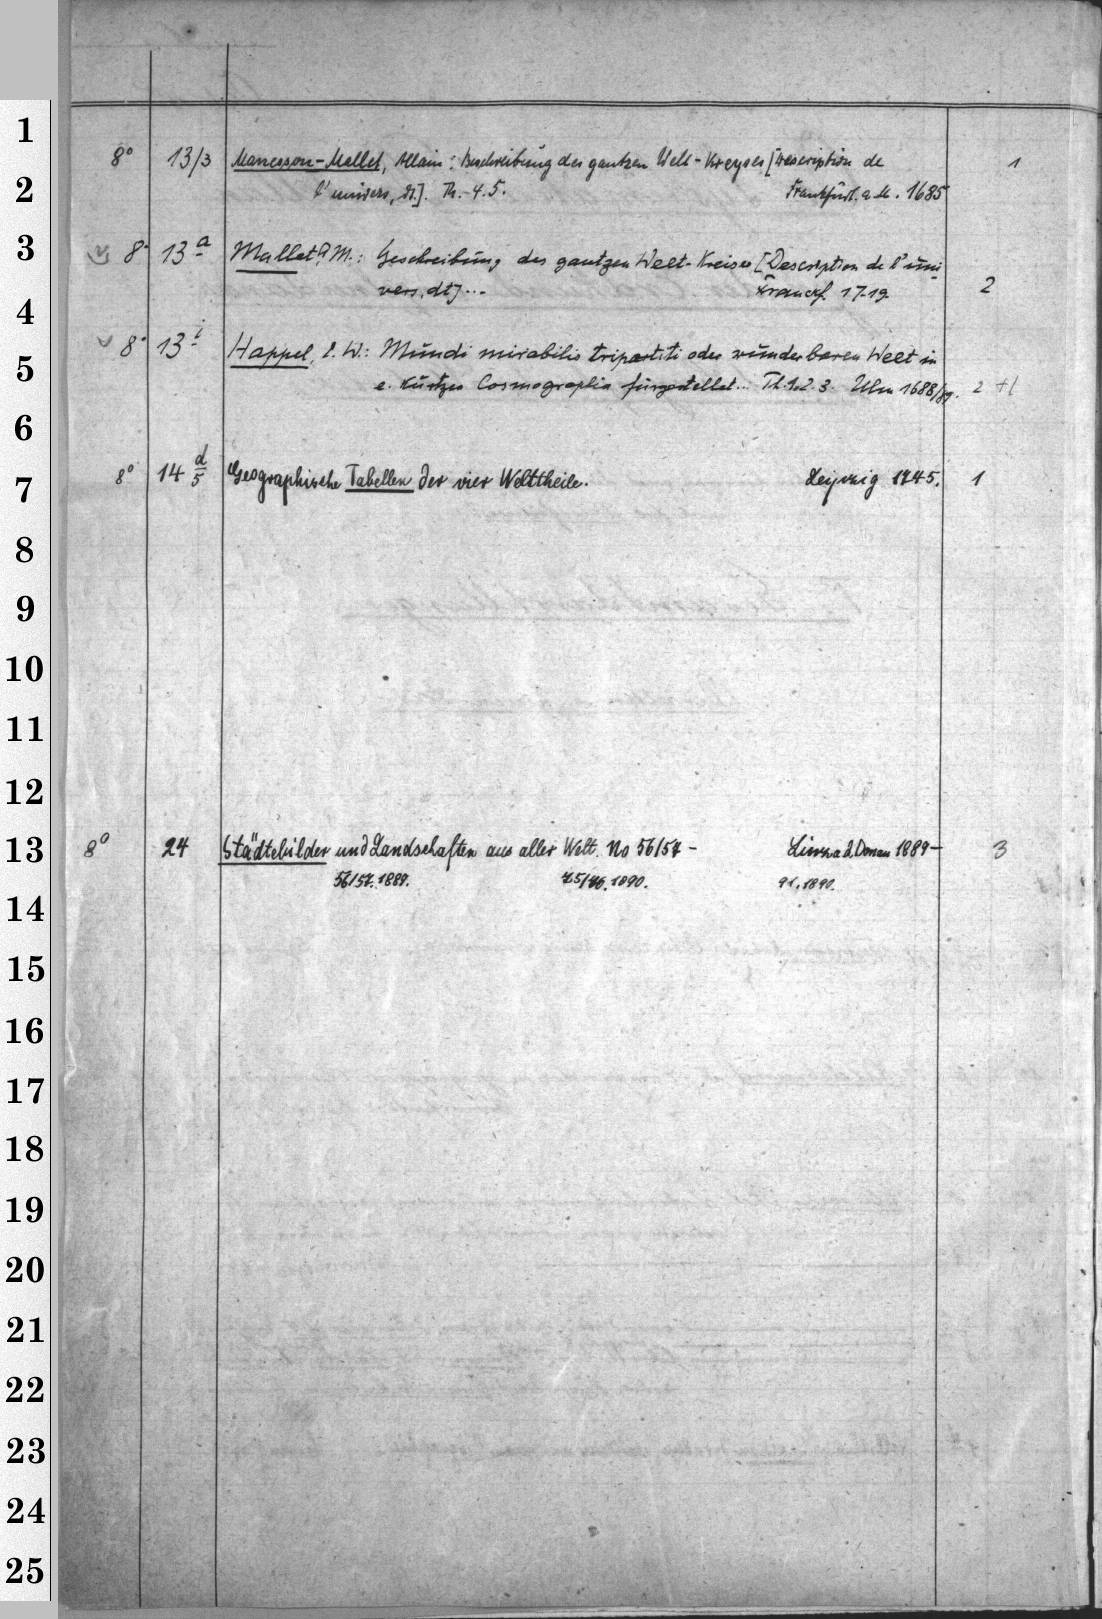 1
8° 13/3 Manesson-Mallet, Allain: Beschreibung des gantzen Welt-Kreyses [Description de 1
2
l'univers, dt.]. Th. 4.5. Frankfurt a. M. 1685
3
8° 13 a Mallet, A. M.: Beschreibung des gantzen Welt-Kreises [Description de l'uni-
vers, dt] ... Franckf. 17-19 2
4
8° 13 i Happel, E. W.: Mundi mirabilis tripartiti oder wunderbaren Welt in
5
e. kurtzen Cosmographia fürgestellet... Th. 1. 2. 3. Ulm 1688/89. 2 +1
6
8° 14 d/5 Geographische Tabellen der vier Welttheile. Leipzig 1745. 1
7
8
9
10
11
12
13
8° 24 Städtebilder und Landschaften aus aller Welt. No 56/57 - Linz a. d. Donau 1889- 3
56/57. 1889. 75/76. 1890. 91. 1890.
14
15
16
17
18
19
20
21
22
23
24
25